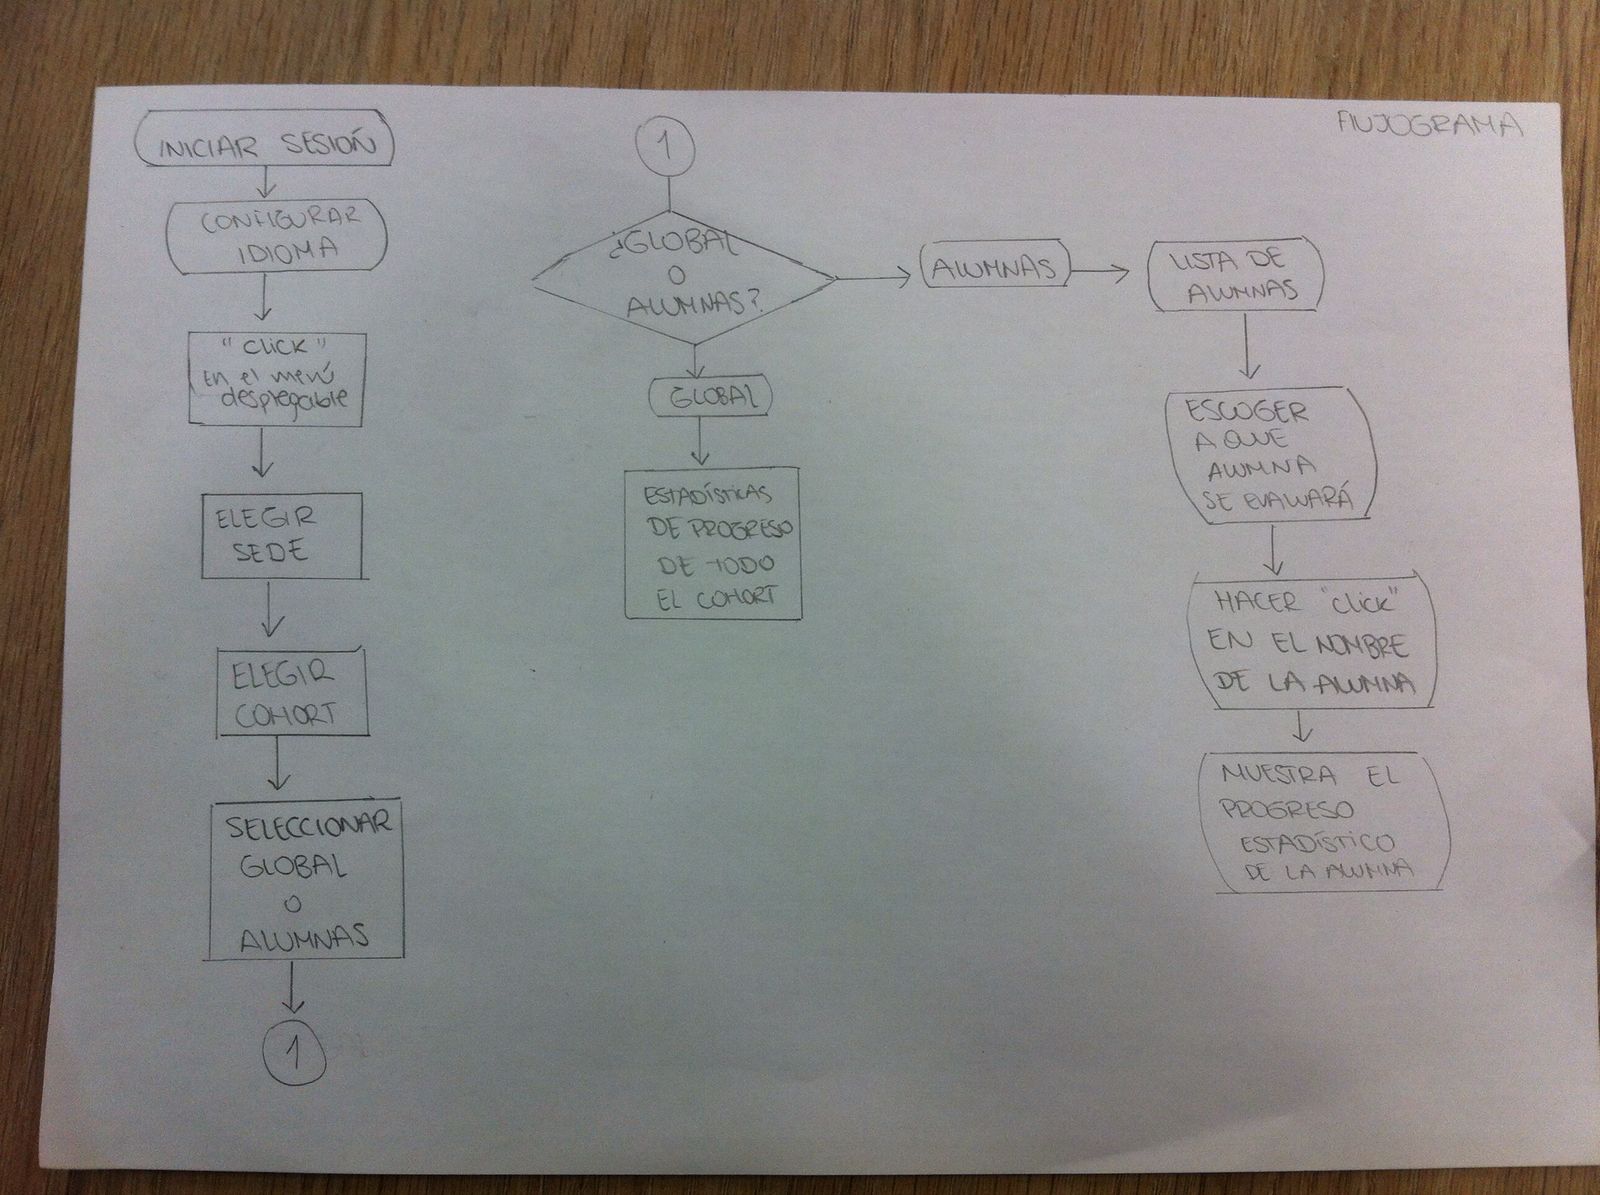 FLUJOGRAMA
INICIAR SESIÓN
CONFIGURAR
IDIOMA
"click"
En el menú
despregable
ELEGIR
SEDE
ELEGIR
COHORT
SELECCIONAR
GLOBAL
O
ALUMNAS
1
1
¿GLOBAL
O
ALUMNAS?
GLOBAL
ESTADÍSTICAS
DE PROGRESO
DE TODO
EL COHORT
ALUMNAS
LISTA DE
ALUMNAS
ESCOGER
A QUE
ALUMNA
SE EVALUARÁ
HACER "click"
EN EL NOMBRE
DE LA ALUMNA
MUESTRA EL
PROGRESO
ESTADÍSTICO
DE LA ALUMNA